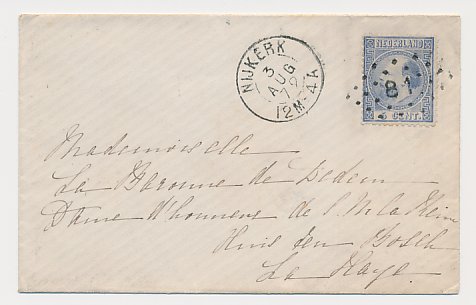 NIJKERK
3
AUG
72
12M-4A
NEDERLAND
81
5 CENT.
Mademoiselle
La Baronne de Dedem
Dame d'honneur de S. M. la Reine
Huis ten Bosch
La Haye